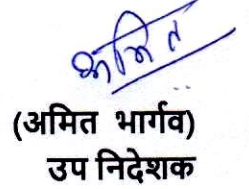 अमित
(अमित भार्गव)
उप निदेशक